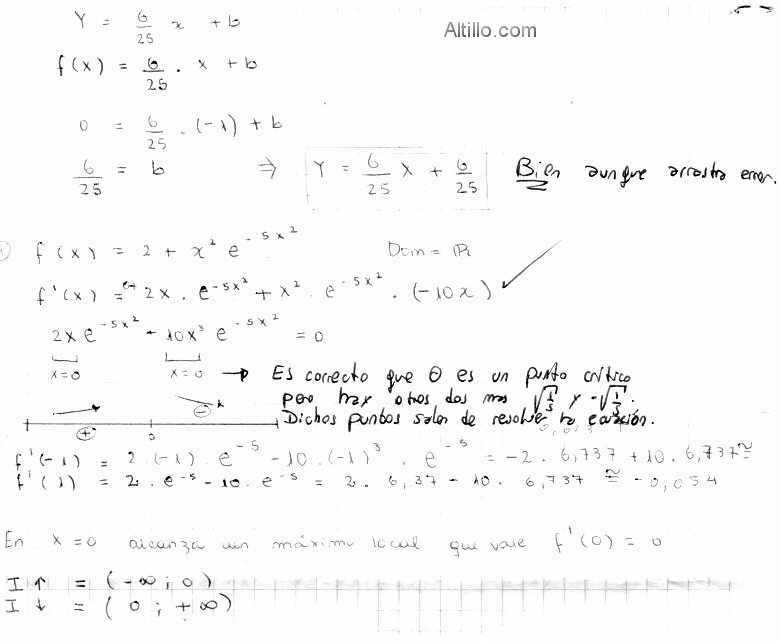 Altillo.com
Y = 6/25 x + b
f(x) = 6/25 . x + b
0 = 6/25 . (-1) + b
6/25 = b ⇒ Y = 6/25 x + 6/25 Bien aunque arrastra error.
f(x) = 2 + x² e^(-5x²) Dom = ℝ
f'(x) = 2x . e^(-5x²) + x² . e^(-5x²) . (-10x) ✓
2x e^(-5x²) - 10x³ e^(-5x²) = 0
x=0 x=0 → Es correcto que 0 es un punto crítico
pero hay otros dos mas √(1/5) y -√(1/5).
Dichos puntos salen de resolver la ecuación.
+ 0 -
f'(-1) = 2.(-1) . e^(-5) - 10 . (-1)³ . e^(-5) = -2 . 6,737 + 10 . 6,737 ≅
f'(1) = 2 . e^(-5) - 10 . e^(-5) = 2 . 6,37 - 10 . 6,737 ≅ -0,054
En x=0 alcanza un máximo local que vale f'(0) = 0
I ↑ = (-∞ ; 0)
I ↓ = (0 ; +∞)